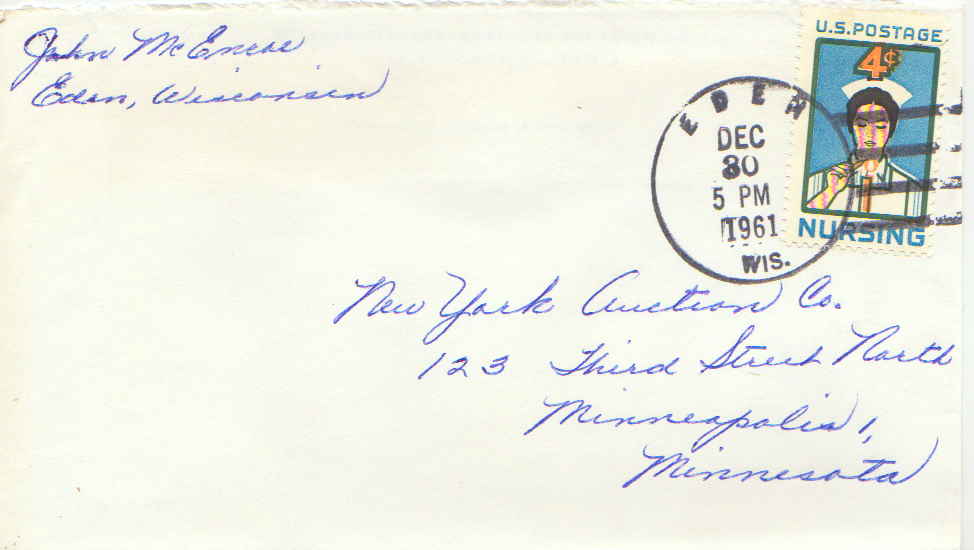 John McEnroe
Eden, Wisconsin
U.S. POSTAGE
4¢
NURSING
EDEN
DEC
30
5 PM
1961
WIS.
New York Auction Co.
123 Third Street North
Minneapolis 1,
Minnesota